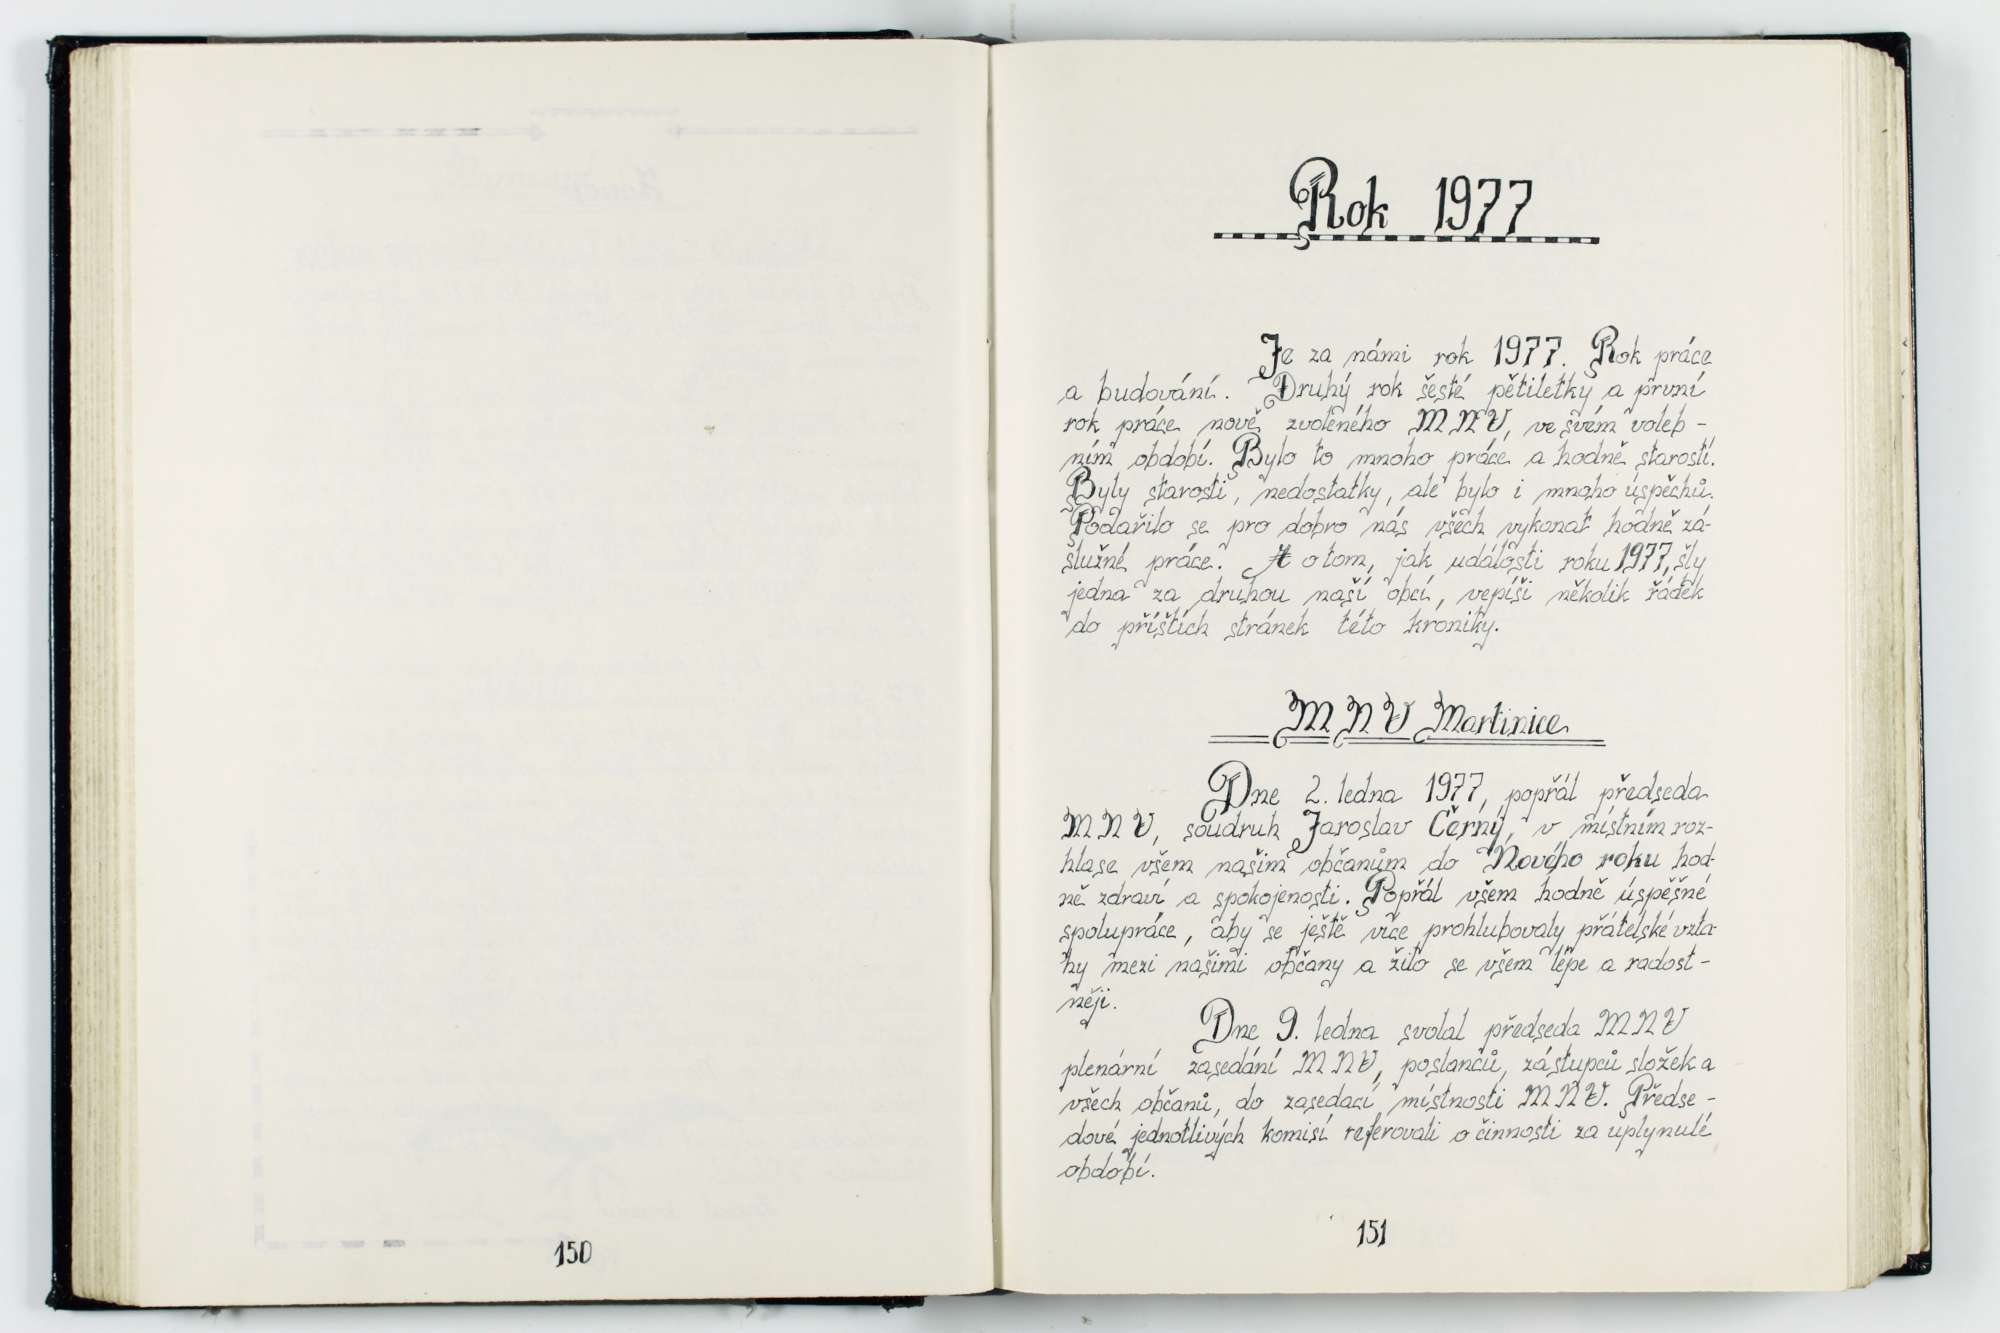 150
Rok 1977
Je za námi rok 1977. Rok práce
a budování. Druhý rok šesté pětiletky a první
rok práce nově zvoleného MNV, ve svém voleb-
ním období. Bylo to mnoho práce a hodně starostí.
Byly starosti, nedostatky, ale bylo i mnoho úspěchů.
Podařilo se pro dobro nás všech vykonat hodně zá-
služné práce. A o tom, jak události roku 1977, šly
jedna za druhou naší obcí, vepíši několik řádek
do příštích stránek této kroniky.
MNV Martinice
Dne 2. ledna 1977, popřál předseda
MNV, soudruh Jaroslav Černý, v místním roz-
hlase všem našim občanům do Nového roku hod-
ně zdraví a spokojenosti. Popřál všem hodně úspěšné
spolupráce, aby se ještě více prohlubovaly přátelské vzta-
hy mezi našimi občany a žilo se všem lépe a radost-
něji.
Dne 9. ledna svolal předseda MNV
plenární zasedání MNV, poslanců, zástupců složek a
všech občanů, do zasedací místnosti MNV. Předse-
dové jednotlivých komisí referovali o činnosti za uplynulé
období.
151